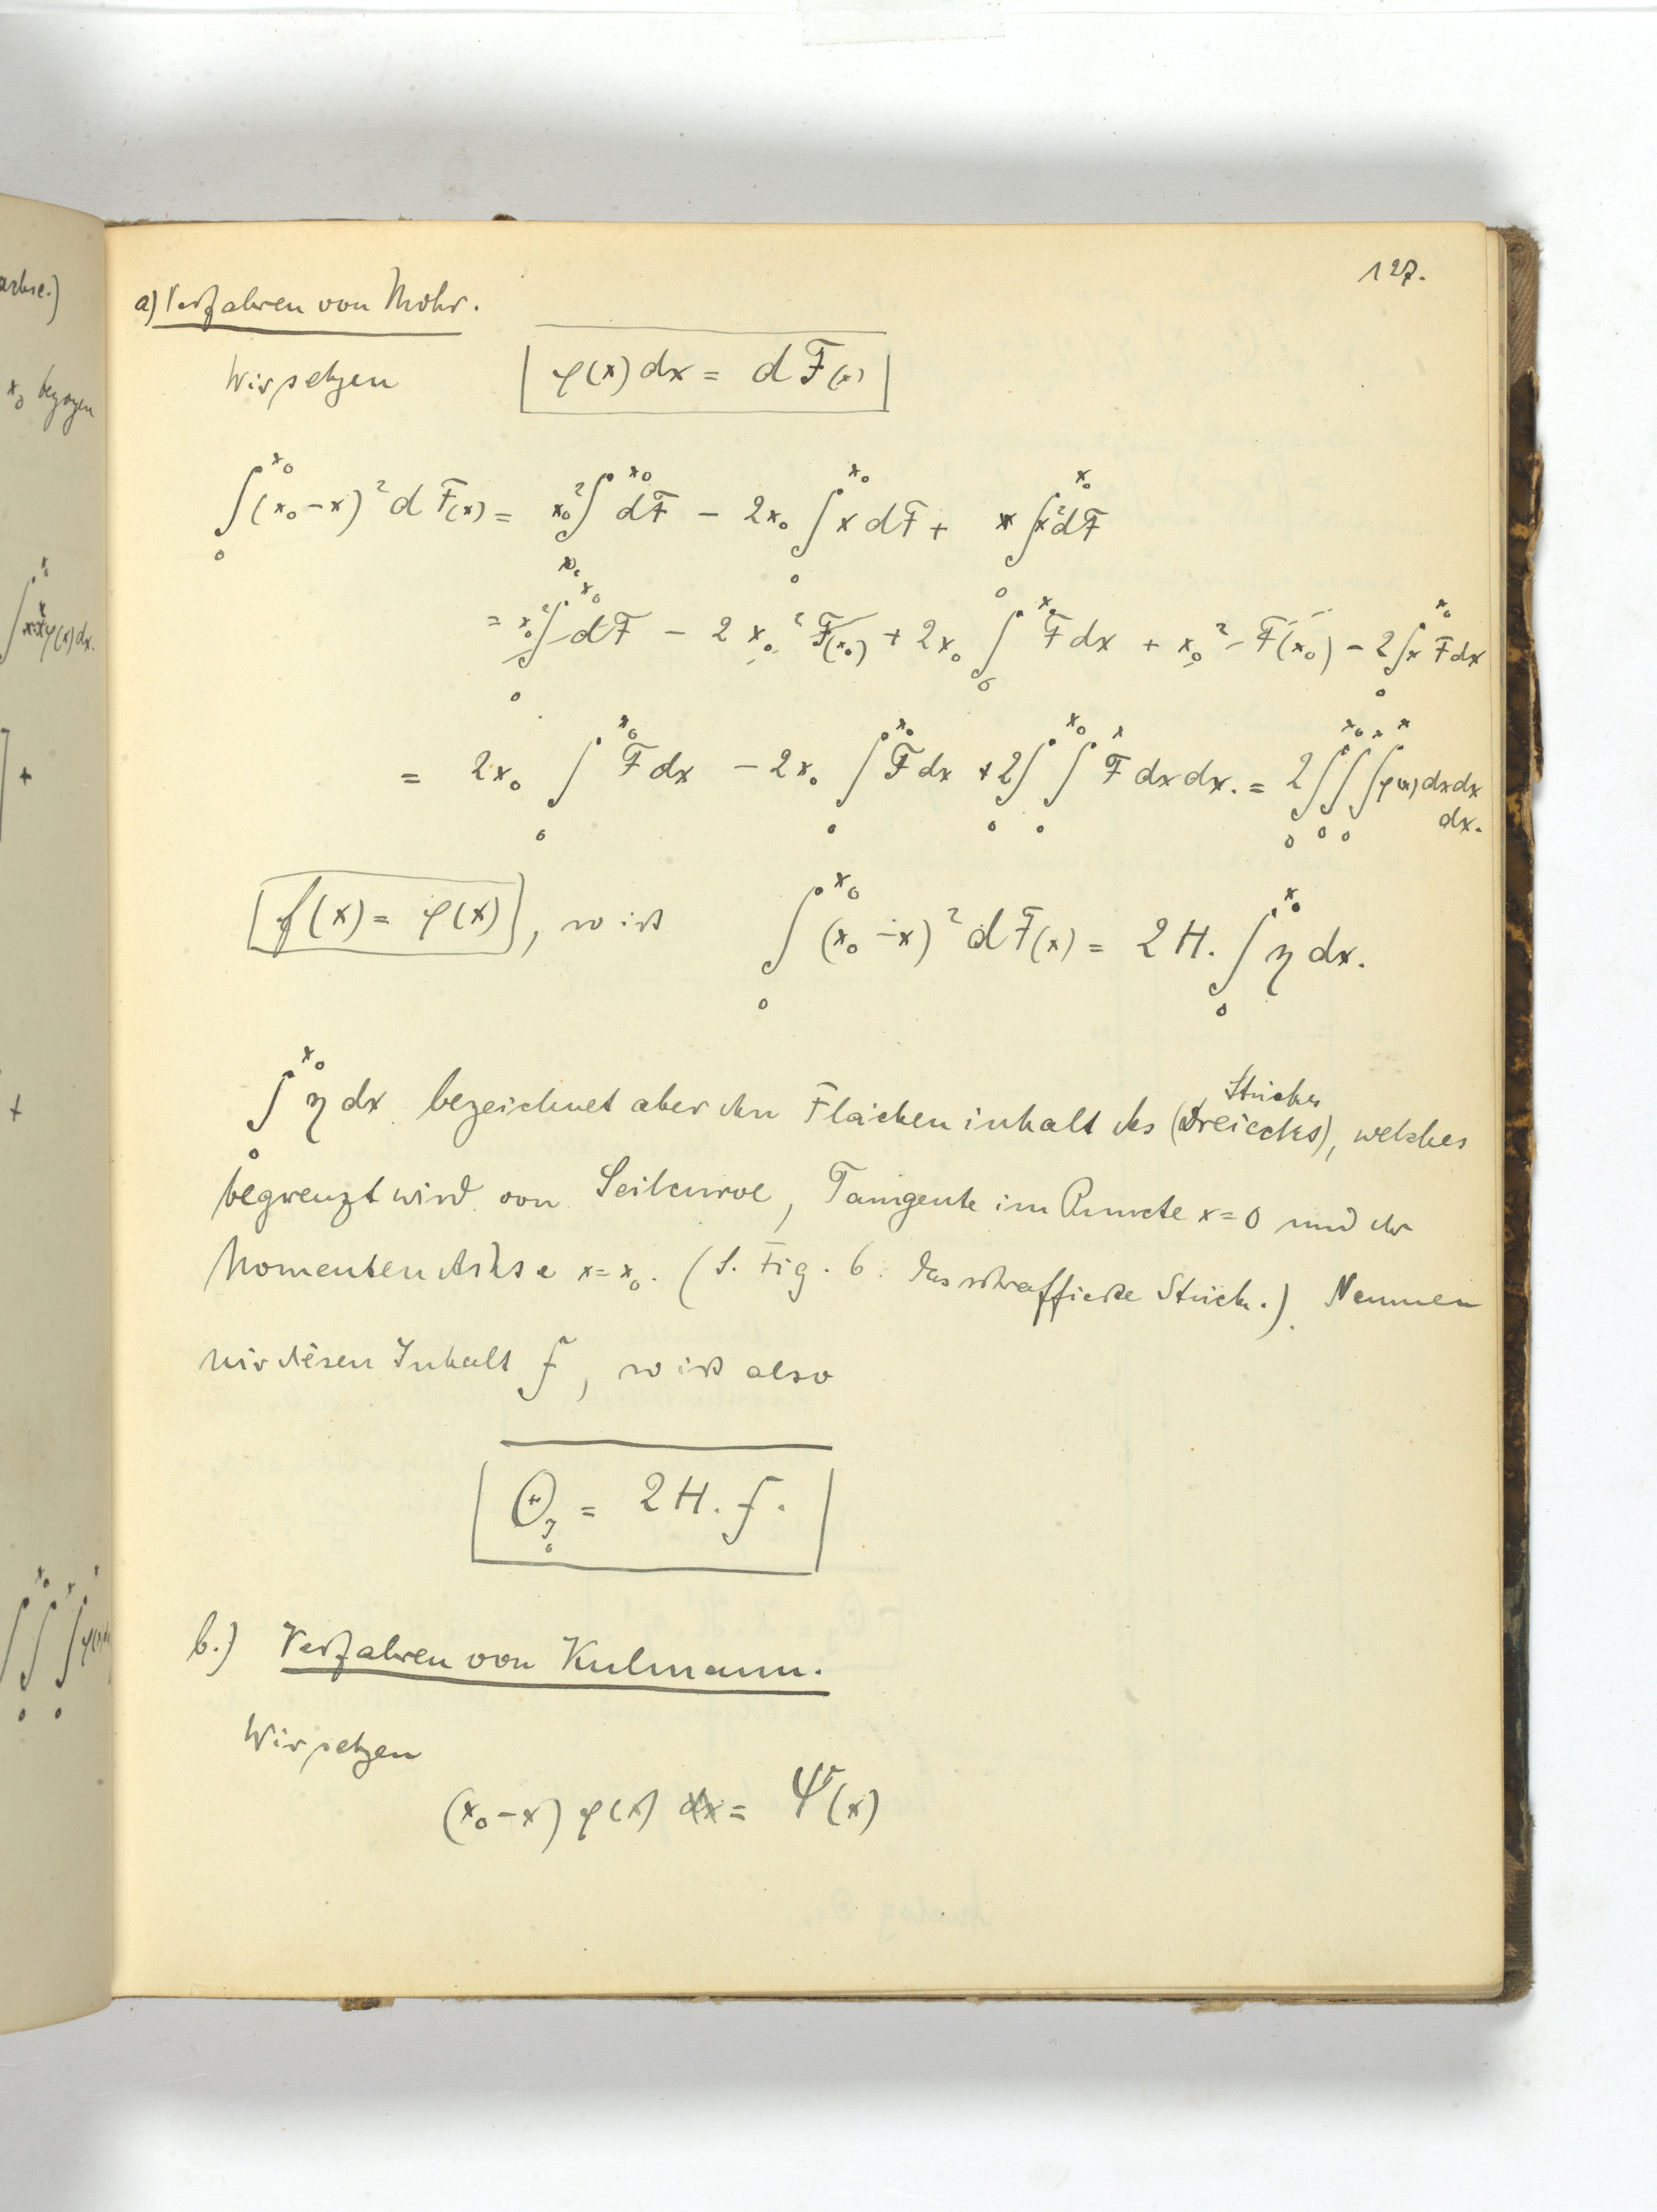 127.
achse.)
x₀ bezogen
a) Verfahren von Mohr.
Wir setzen φ(x) dx = dF(x)
∫₀^{x₀} (x₀-x)² dF(x) = x₀² ∫ dF - 2x₀ ∫₀^{x₀} x dF + ∫₀^{x₀} x² dF
= x₀² ∫₀^{x₀} dF - 2x₀² F(x₀) + 2x₀ ∫₀^{x₀} F dx + x₀² F(x₀) - 2∫₀^{x₀} x F dx
= 2x₀ ∫₀^{x₀} F dx - 2x₀ ∫₀^{x₀} F dx + 2∫₀^{x₀} ∫₀^{x} F dx dx. = 2∫₀^{x₀} ∫₀^{x} ∫₀^{x} φ(x) dx dx
dx.
f(x) = φ(x), so ist ∫₀^{x₀} (x₀-x)² dF(x) = 2H. ∫₀^{x₀} η dx.
Stückes
∫₀^{x₀} η dx bezeichnet aber den Flächeninhalt des (Dreiecks), welches
begrenzt wird von Seilcurve, Tangente im Puncte x=0 und der
Momenten Achse x=x₀. (S. Fig. 6. Das schraffierte Stück.) Nennen
wir diesen Inhalt f, so ist also
Θ = 2H. f.
b.) Verfahren von Kulmann.
Wir setzen
(x₀-x) φ(x) dx = Ψ(x)